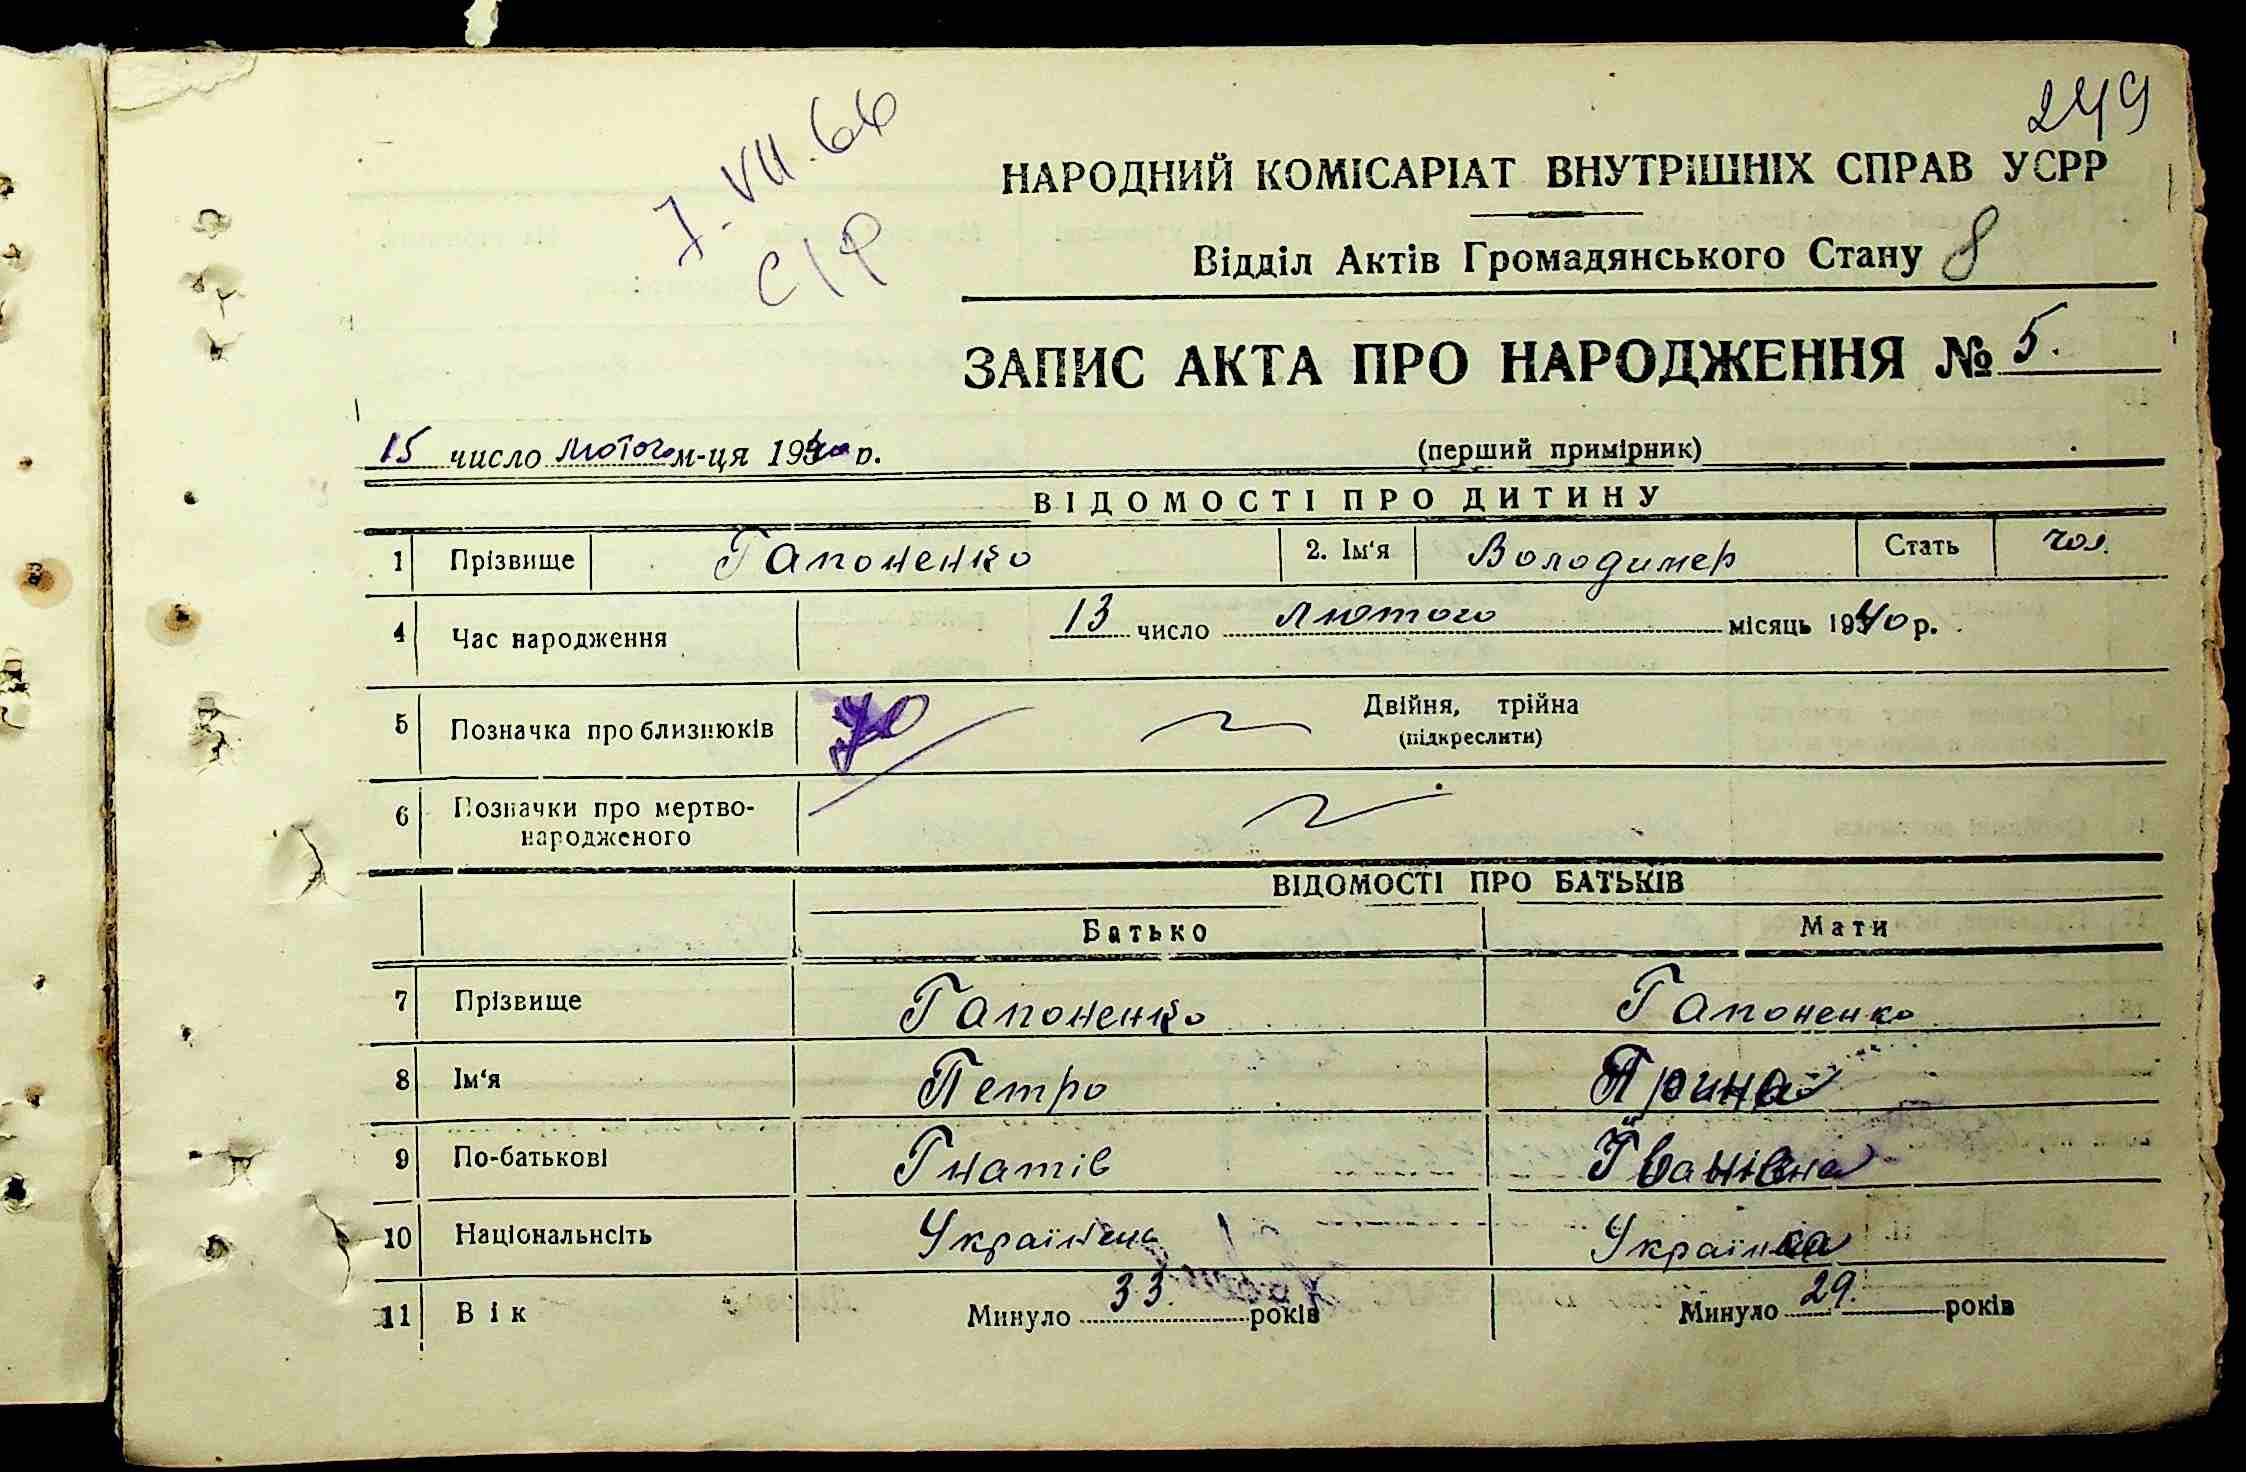 249
7.VII.66
НАРОДНИЙ КОМІСАРІАТ ВНУТРІШНІХ СПРАВ УСРР
Відділ Актів Громадянського Стану 8
ЗАПИС АКТА ПРО НАРОДЖЕННЯ № 5.
15 число лютого м-ця 1940 р. (перший примірник)
ВІДОМОСТІ ПРО ДИТИНУ
1 Прізвище Гапоненко 2. Ім'я Володимер Стать чол.
4 Час народження 13 число лютого місяць 1940 р.
5 Позначка про близнюків Двійня, трійна
(підкреслити)
6 Позначки про мертво-
народженого
ВІДОМОСТІ ПРО БАТЬКІВ
Батько Мати
7 Прізвище Гапоненко Гапоненко
8 Ім'я Петро Ярина
9 По-батькові Гнатів Іванівна
10 Національнсіть Українець Українка
11 Вік Минуло 33. років Минуло 29. років